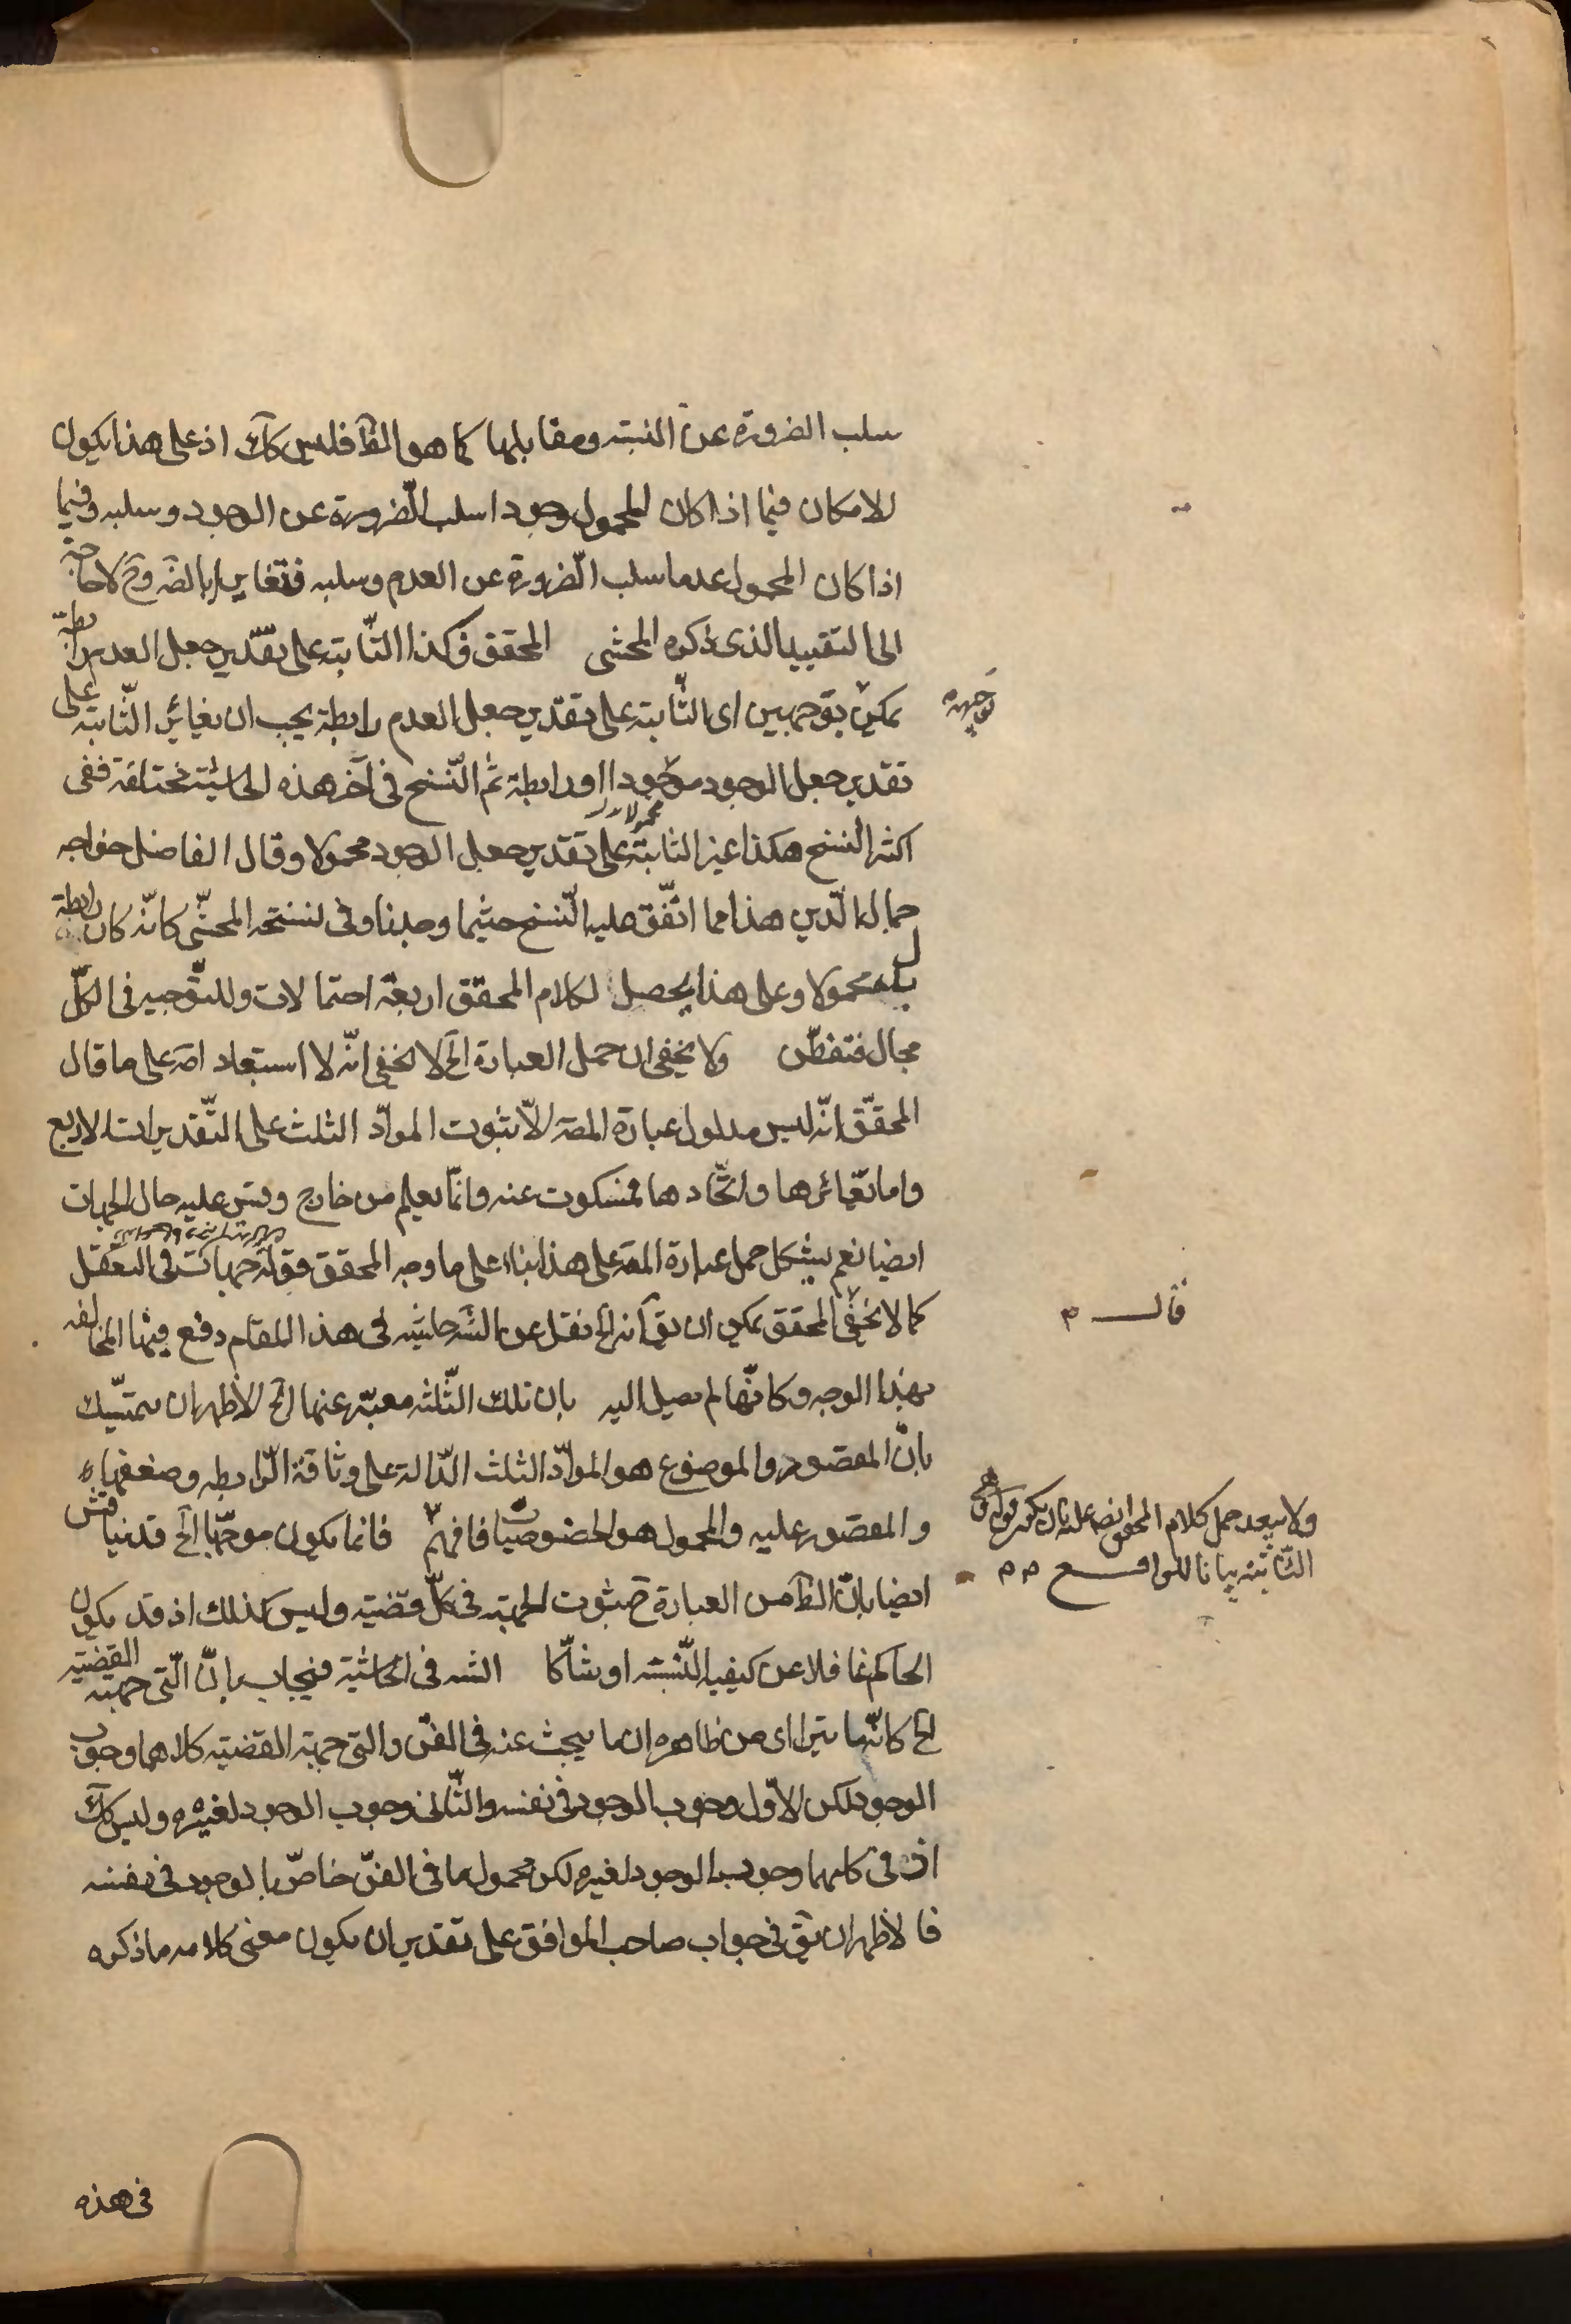 سلب الضرورة عن النسبة ومقابلها كما هو الظ فليس كك اذ على هذا يكون
للامكان فيما اذا كان المحمول وجودا سلب الضرورة عن الوجود وسلبه وفيما
اذا كان المحمول عدما سلب الضرورة عن العدم وسلبه فتغايرا بالضه وح لا حاجة
الى التقييد الذى ذكره المحشى المحقق وكذا الثابتة على تقدير جعل العدم رابطة
يمكن توجيهين اى الثابتة على تقدير جعل العدم رابطة يجب ان يغاير الثابتة على
تقدير جعل الوجود موجودا او رابطة ثم النسخ فى آخر هذه الحاشية مختلفة ففى
اكثر النسخ هكذا غير الثابتة على تقدير جعل الوجود محمولا وقال الفاضل خواجه
جمال الدين هذا مما اتفق عليه النسخ حيثما وجدنا وفى نسخة المحشى كانه كان رابطة
بدل محمولا وعلى هذا يحصل لكلام المحقق اربعة احتمالات وللتوجيه فى الكل
مجال فتفطن ولا يخفى ان حمل العبارة الخ لا يخفى انه لا استبعاد اصه على ما قال
المحقق انه ليس مدلول عبارة المصه الا ثبوت المواد الثلث على التقديرات الاربع
واما تغايرها واتحادها فمسكوت عنه وانما يعلم من خارج وقس عليه حال الجهات
ايضا نعم يشكل حمل عبارة المصه على هذا بناء على ما وجه المحقق قوله جهات فى التعقل
كما لا يخفى المحقق يمكن ان يق انه الخ نقل عن الشه حاشية فى هذا المقام دفع فيها المخالفه
بهذا الوجه وكانها لم يصل اليه بان تلك الثلثه معبره عنها الخ الاظهر ان يتمسك
بان المقصود والموضوع هو المواد الثلث الدالة على وثاقة الرابطه وضعفها
والمقصور عليه والمحمول هو الخصوصيات فافهم فانما يكون موجها الخ قد نياقش
ايضا بان الظ من العبارة ح ثبوت الجهة فى كل قضية وليس كذلك اذ قد يكون
الحاكم غافلا عن كيفية النسبة او شاكا الشه فى الحاشية فيجاب بان التى جهة القضية
الخ كانها يترااى من ظاهره ان ما يبحث عنه فى الفن والتى جهة القضية كلاهما وجوب
الوجود لكن الاول وجوب الوجود فى نفسه والثانى وجوب الوجود لغيره وليس كك
اذ فى كليهما وجوب الوجود لغيره لكن محمول ما فى الفن خاص بالوجود فى نفسه
فالاظهر ان يق فى جواب صاحب المواقف على تقدير ان يكون معنى كلامه ما ذكره
قال م
ولا يبعد حمل كلام المحقق ايضه عليه بان يكون قوله
الثابتة بيانا للواقع م م
فى هذه